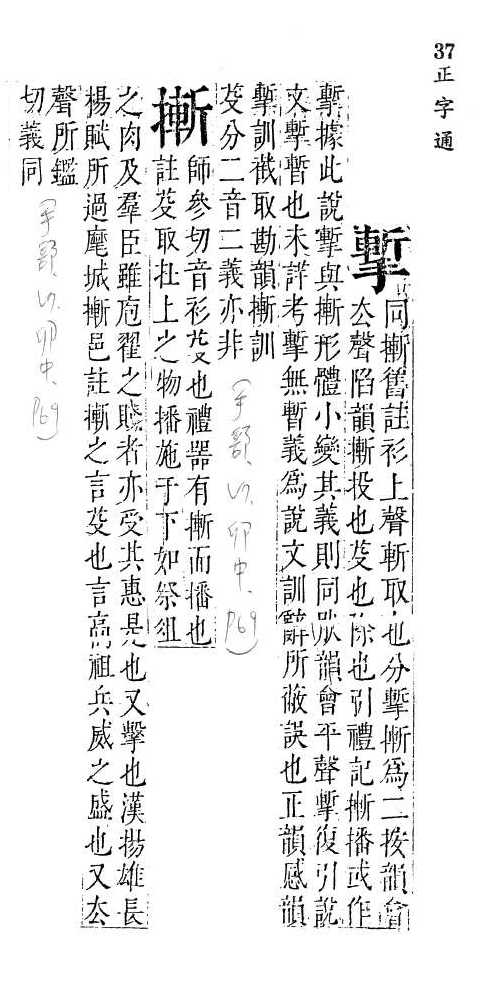 37 正字通
同摲舊註衫上聲斬取也分摲爲二按韻會
去聲陷韻摲投也芟也除也引禮記摲播或作
據此說與摲形體小變其義則同肰韻會平聲復引說
文暫也未詳考無暫義爲說文訓辭所蔽誤也正韻感韻
訓截取勘韻摲訓
芟分二音二義亦非
卯中 P69)
摲
師參切音衫芟也禮器有摲而播也
註芟取在上之物播施于下如祭俎
之肉及羣臣雖庖翟之賤者亦受其惠是也又擊也漢揚雄長
楊賦所過麾城摲邑註摲之言芟也言高祖兵威之盛也又去
聲所鑑
切義同
卯中 P69)